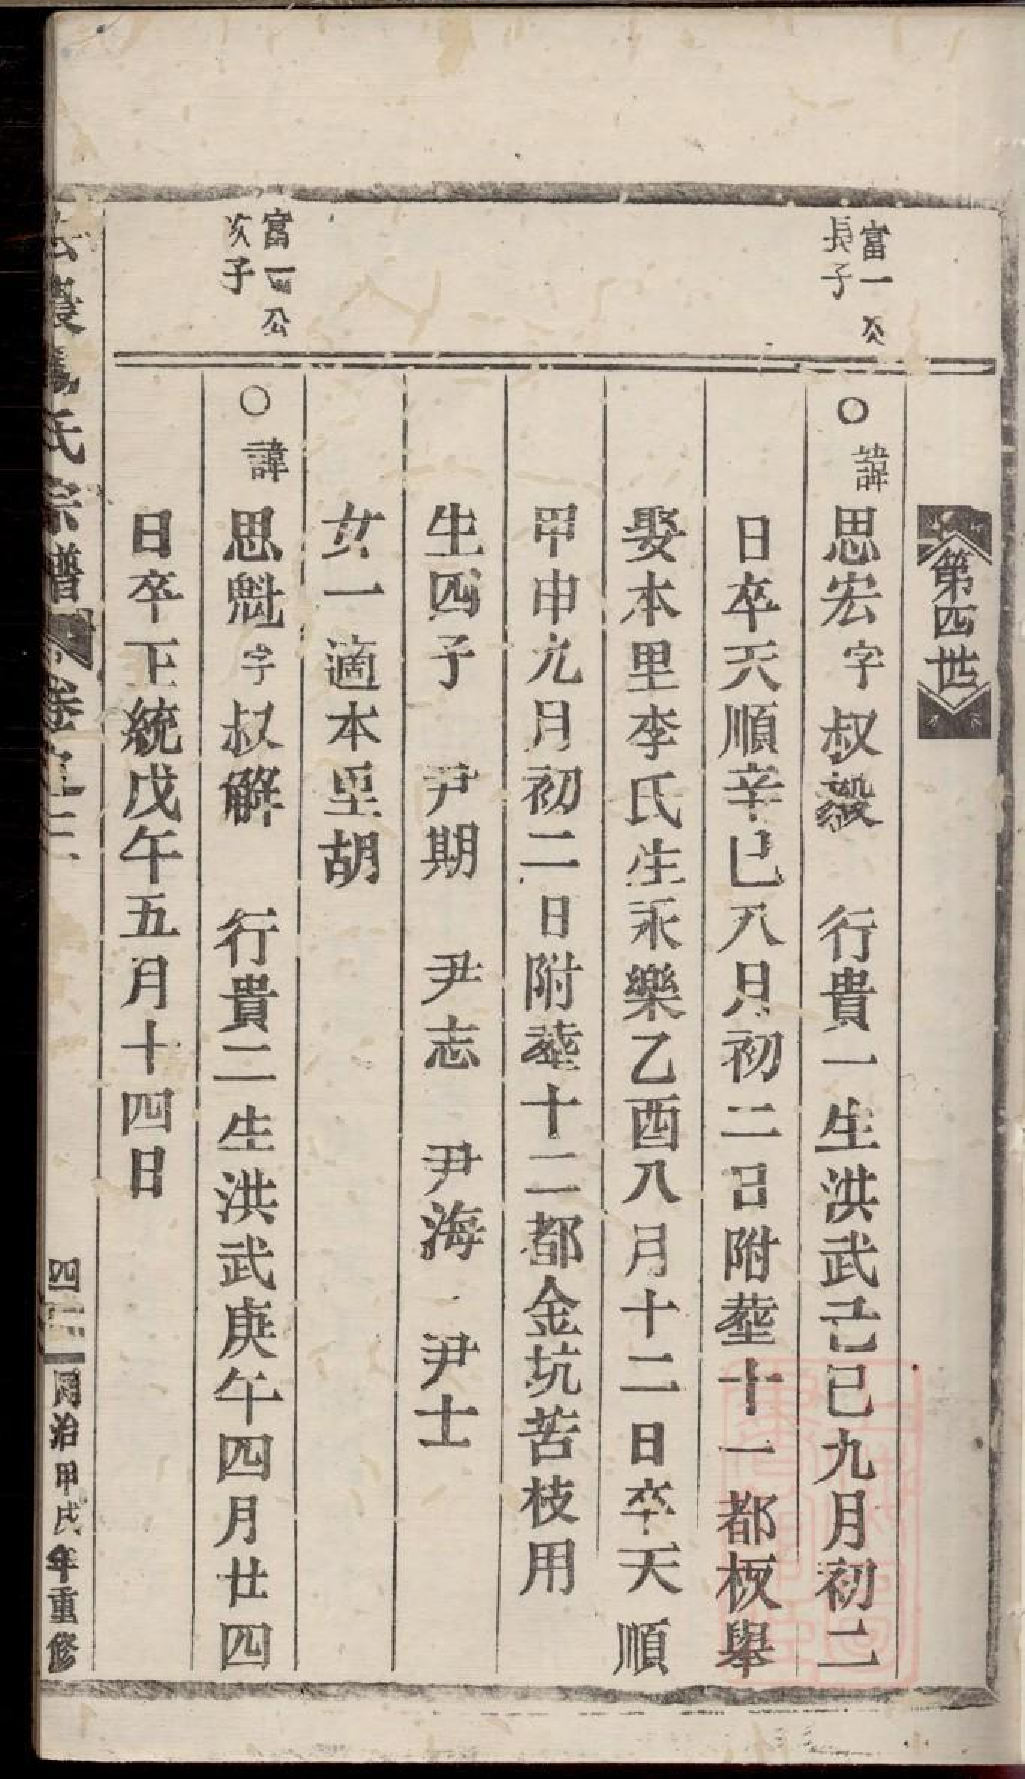 第四世
富一公
長子
○諱思宏字叔毅 行貴一生洪武己巳九月初二
日卒天順辛巳八月初二日附塟十一都板舉
娶本里李氏生永樂乙酉八月十二日卒天順
甲申九月初二日附塟十二都金坑苦枝用
生四子 尹期 尹志 尹海 尹士
女一適本里胡
富一公
次子
○諱思魁字叔解 行貴二生洪武庚午四月廿四
日卒正統戊午五月十四日
氏宗譜 卷
四
同治甲戌年重修